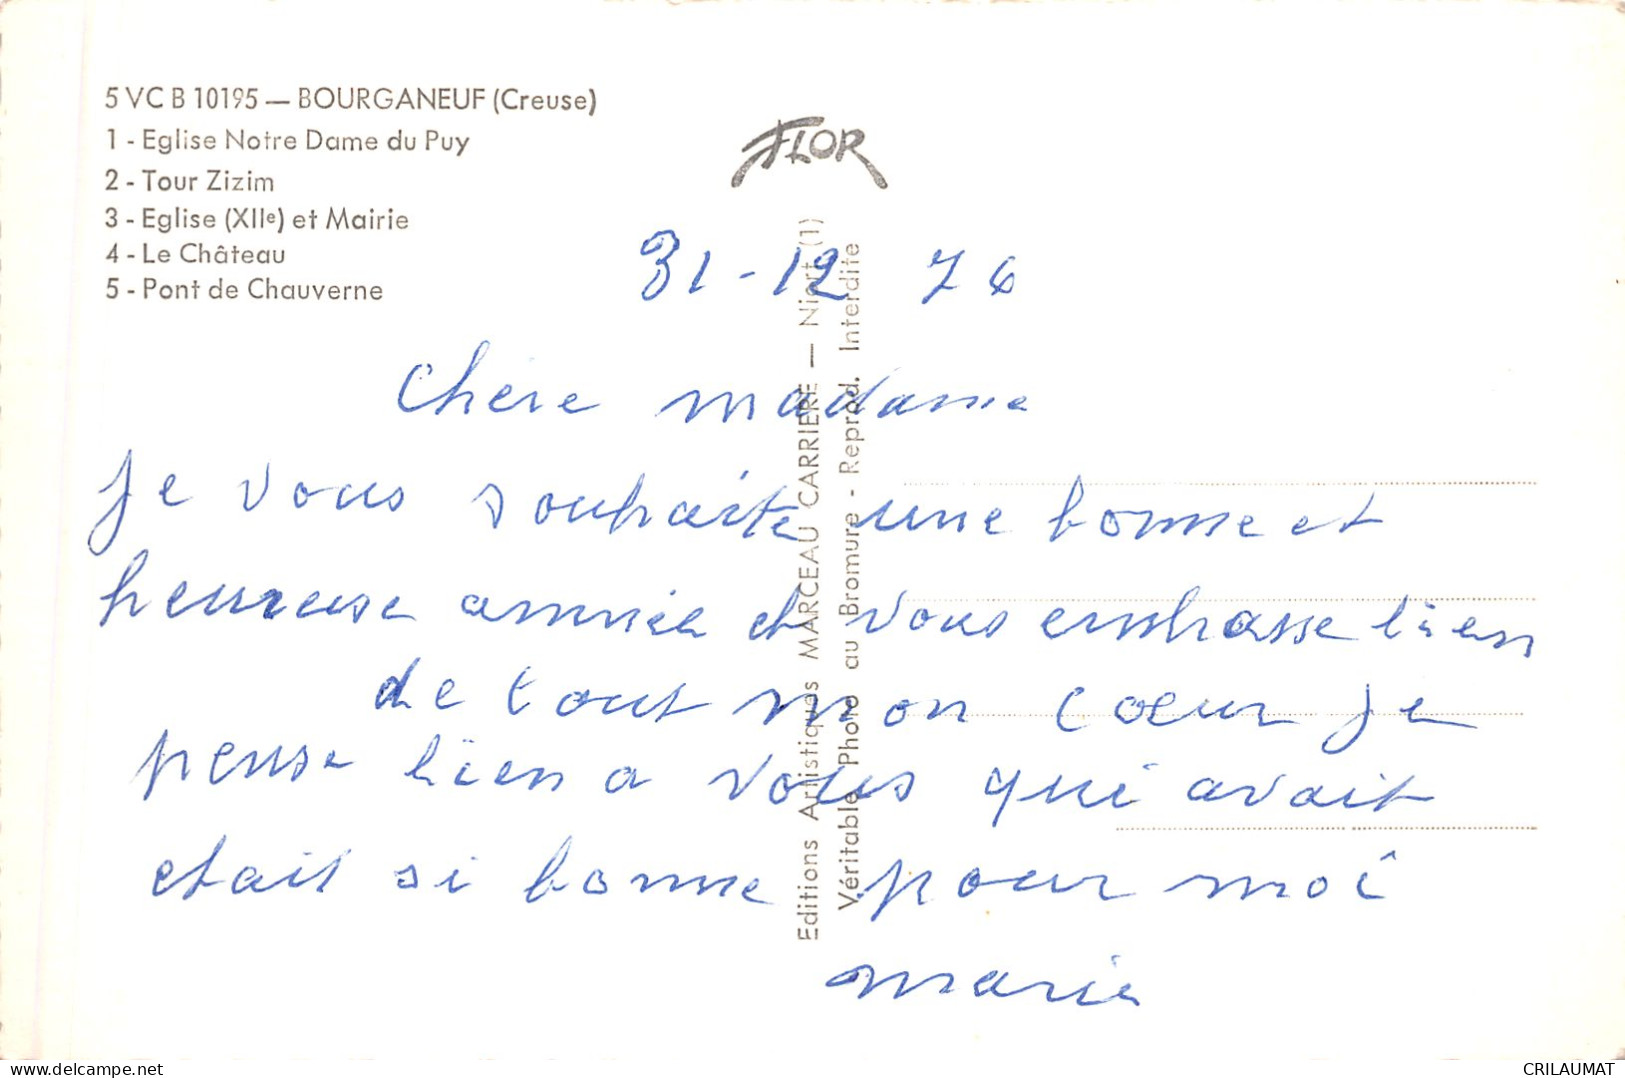 5 VC B 10195 — BOURGANEUF (Creuse)
1 - Eglise Notre Dame du Puy
2 - Tour Zizim
3 - Eglise (XIIe) et Mairie
4 - Le Château
5 - Pont de Chauverne
FLOR
Editions Artistiques MARCEAU CARRIERE — Niort (1)
Véritable Photo au Bromure - Reprod. Interdite
31-12 76
Chère madame
je vous souhaite une bonne et
heureuse année et vous embrasse bien
de tout mon coeur je
pense bien a vous qui avait
etait si bonne pour moi
marie
delcampe.net
CRILAUMAT